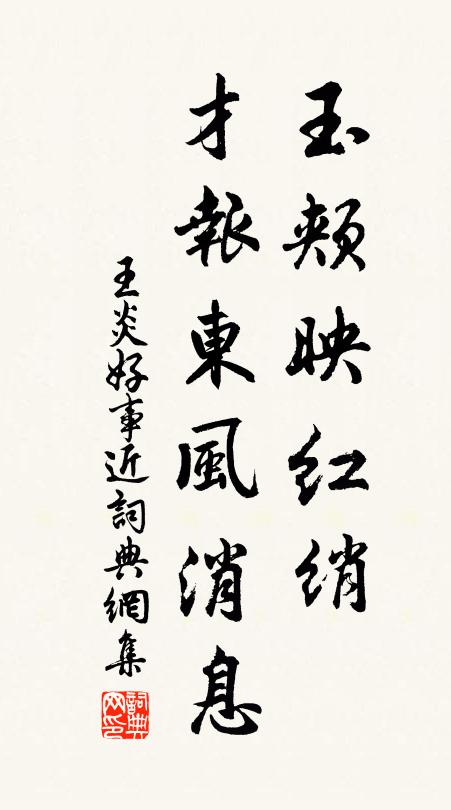 玉頰映红绡
才報東風消息
王炎好事近詞典網集
詞典
网印